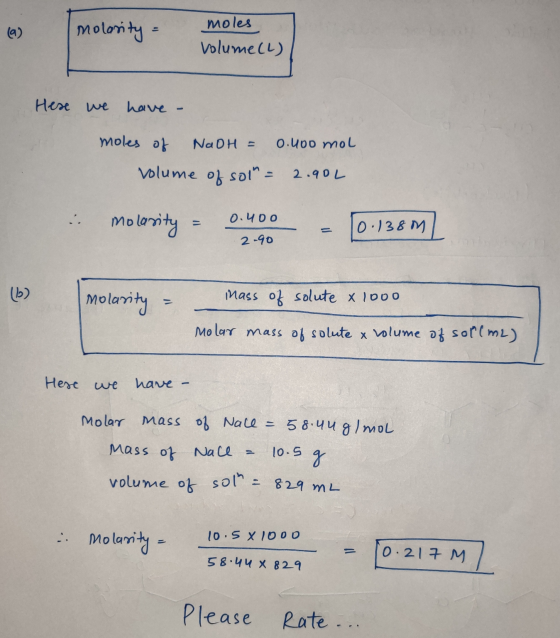 (a) Molarity = moles / Volume(L)
Here we have -
moles of NaOH = 0.400 mol
Volume of solⁿ = 2.90L
∴ Molarity = 0.400 / 2.90 = 0.138 M
(b) Molarity = Mass of solute x 1000 / Molar mass of solute x volume of solⁿ(mL)
Here we have -
Molar Mass of NaCl = 58.44 g/mol
Mass of NaCl = 10.5 g
volume of solⁿ = 829 mL
∴ Molarity = 10.5 X 1000 / 58.44 X 829 = 0.217 M
Please Rate...